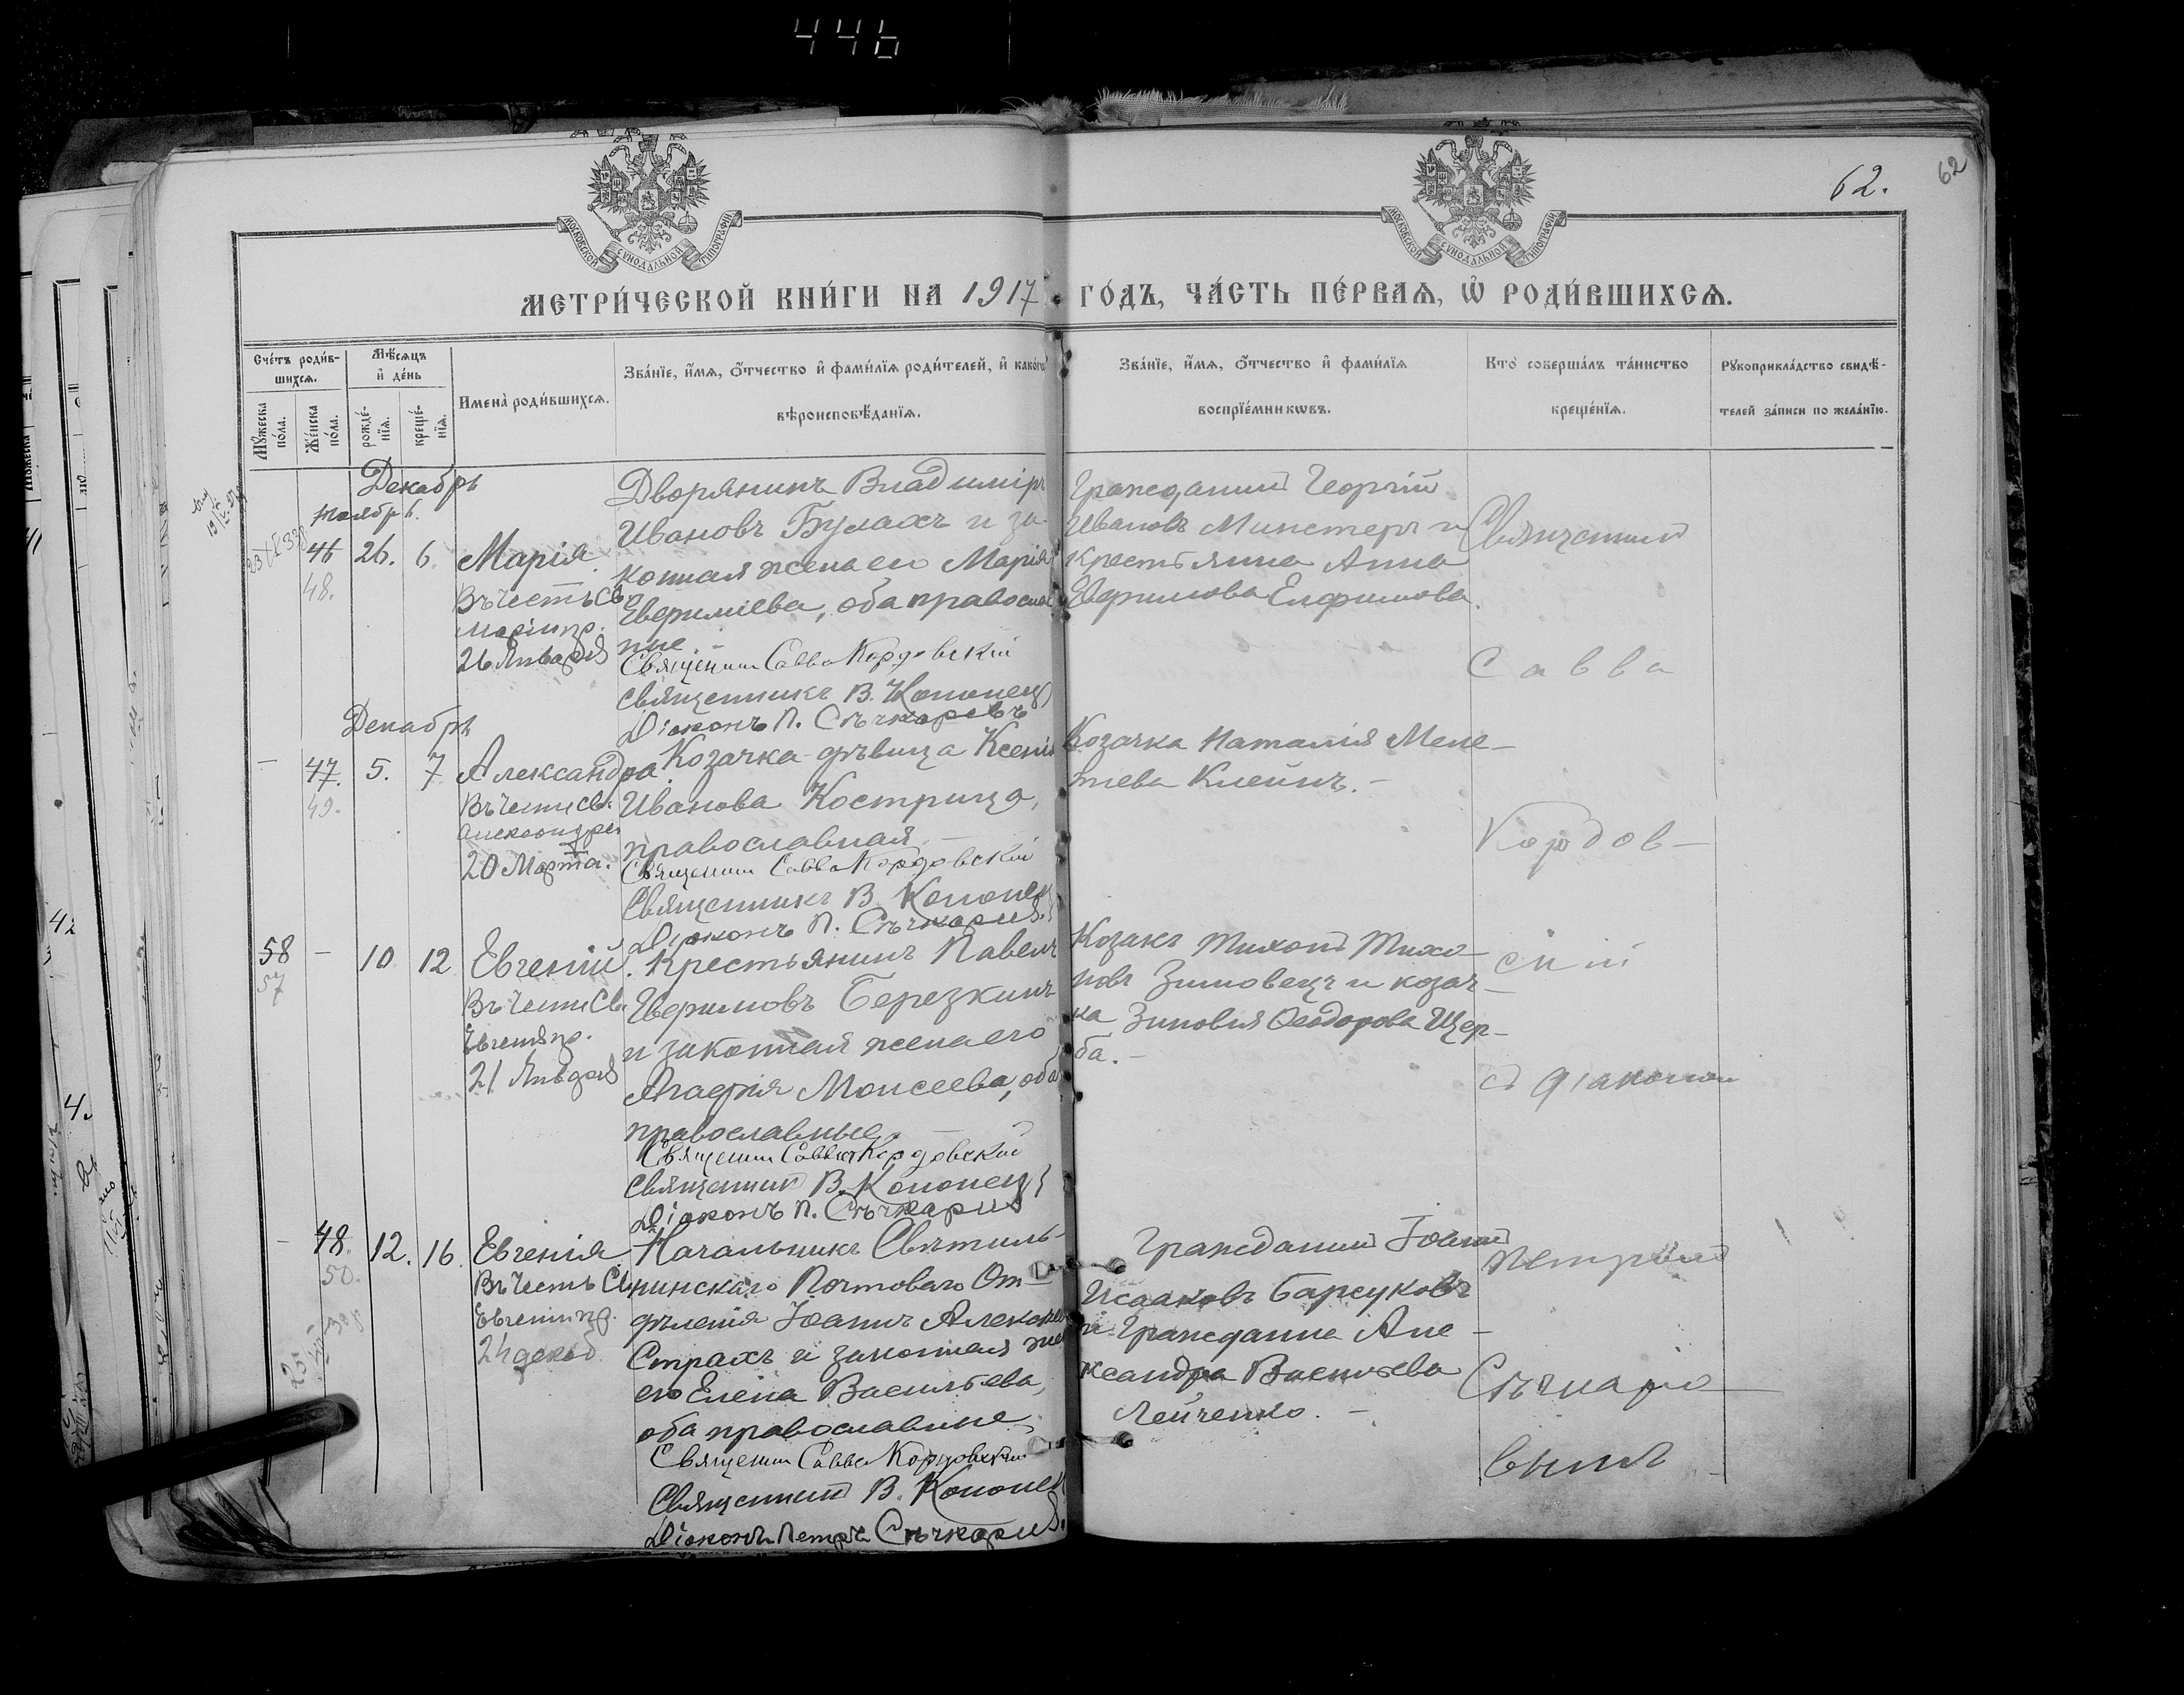 446
62.
62
МОСКОВСКОЙ СУНОДАЛЬНОЙ ТИПОГРАФІИ
МОСКОВСКОЙ СУНОДАЛЬНОЙ ТИПОГРАФІИ
МЕТРИ́ЧЕСКОЙ КНИ́ГИ НА 1917 ГО́ДЪ, ЧА́СТЬ ПЕ́РВАЯ, Ѡ҆ РОДИ́ВШИХСЯ.
Сче́тъ роди́в-
шихся.
Мѣ́сяцъ
и҆ де́нь
Мꙋ́жеска
по́ла.
Же́нска
по́ла.
рожде́-
нїя.
креще́-
нїя.
Имена̀ роди́вшихся.
Зва́нїе, и҆́мя, ѻ҆́тчество и҆ фами́лїя роди́телей, и҆ како́гѡ
вѣроисповѣ́данїя.
Зва́нїе, и҆́мя, ѻ҆́тчество и҆ фами́лїя
воспрїе́мникѡвъ.
Кто̀ соверша́лъ та́инство
креще́нїя.
Рꙋкоприкла́дство свидѣ́-
телей за́писи по жела́нїю.
Декабрь
Ноябрь.
46 26. 6. Марія
48.
Въ честь Св.
Маріи пр.
26 Января
Дворянинъ Владиміръ
Ивановъ Булахъ и за-
конная жена его Марія
Евфиміева, оба православ
ные.-
Священникъ Савва Кордовскій
Священникъ В. Кононец
Діаконъ П. Сѣчкаревъ
Гражданинъ Георгій
Ивановъ Минстеръ и
крестьянка Анна
Евфимова Елфимова.
Декабрь
- 47. 5. 7 Александра
49.
Въ честь Св.
Александры
20 Марта.
Козачка-дѣвица Ксенія
Иванова Кострица,
православная.-
Священникъ Савва Кордовскій
Священникъ В. Кононец
Діаконъ П. Сѣчкарев
Козачка Наталія Меле-
тіева Клейнъ.-
58 - 10 12 Евгеній.
57
Въ честь Св.
Евгенія пр.
21 Января
Крестьянинъ Павелъ
Евфимовъ Березкинъ
и законная жена его
Агафія Моисеева, оба
православные.-
Священникъ Савва Кордовскій
Священникъ В. Кононец
Діаконъ П. Сѣчкарев
Козакъ Тихонъ Тихо-
новъ Зимовецъ и козач-
ка Зиновія Ѳеодорова Щер-
ба.-
- 48. 12. 16. Евгенія
50.
Въ честь Св.
Евгеніи пр.
24 декаб
Начальникъ Свѣтиль-
нинскаго Почтоваго От-
дѣленія Іоаннъ Алексѣев
Страхъ и законная жена
его Елена Васильева,
оба православные,
Священникъ Савва Кордовскій
Священникъ В. Кононец
Діаконъ Петръ Сѣчкарев.
Гражданинъ Іоаннъ
Исааковъ Барсуковъ
и Гражданка Але-
ксандра Васильева
Лейченко.-
Священникъ
Савва
Кордов-
скій
съ діакономъ
Петромъ
Сѣчкаре-
вымъ